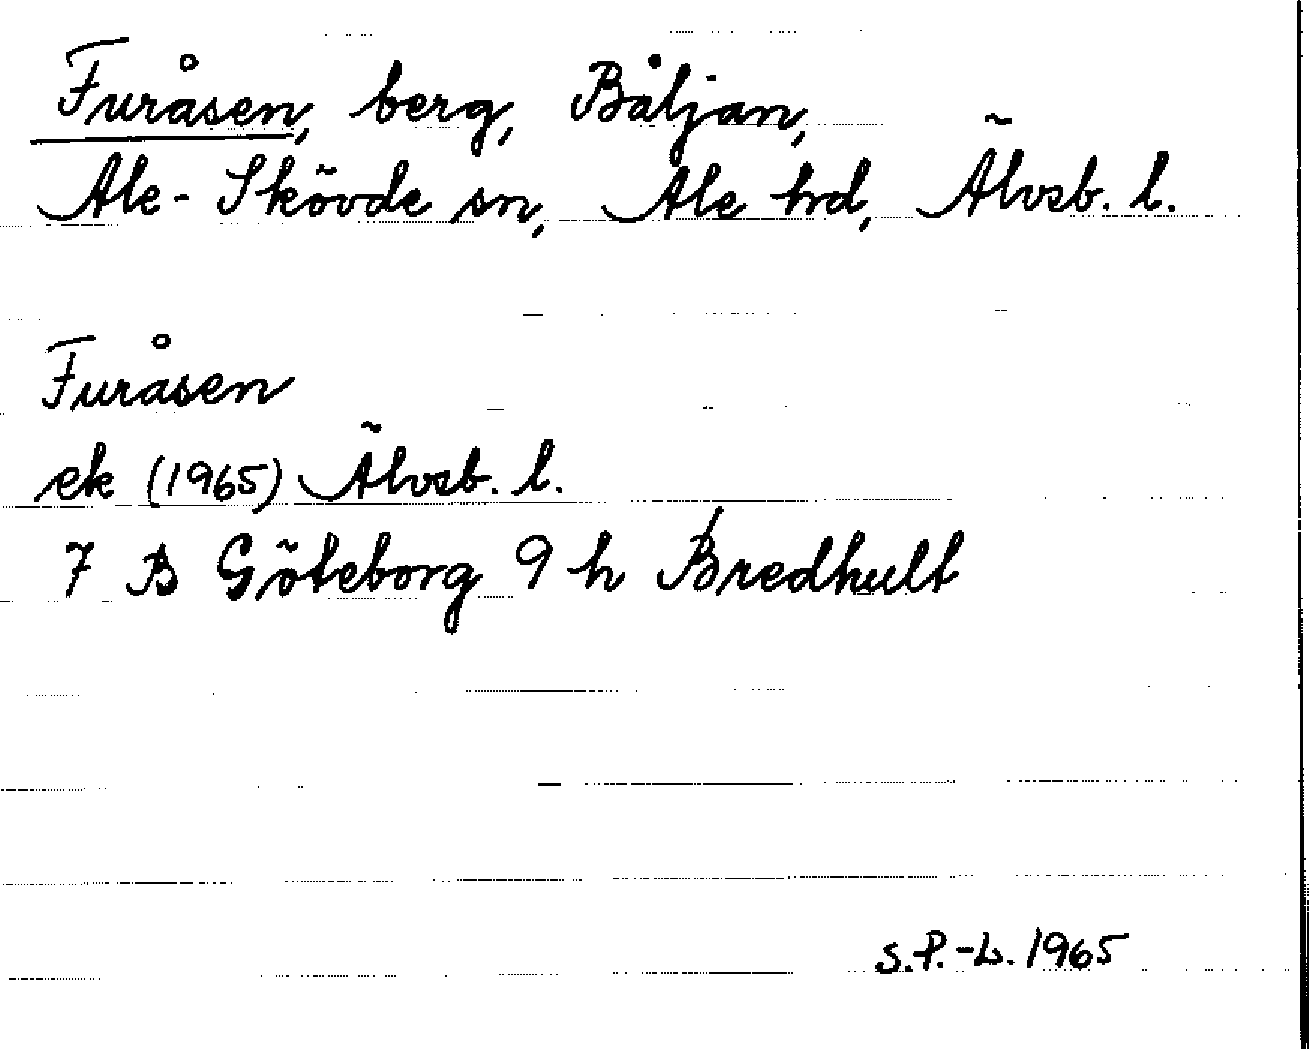 Furåsen, berg, Båljan,
Ale-Skövde sn, Ale hd, Älvsb. l.
Furåsen
ek (1965) Älvsb. l.
7 B Göteborg 9 h Bredhult
S.P.-L. 1965